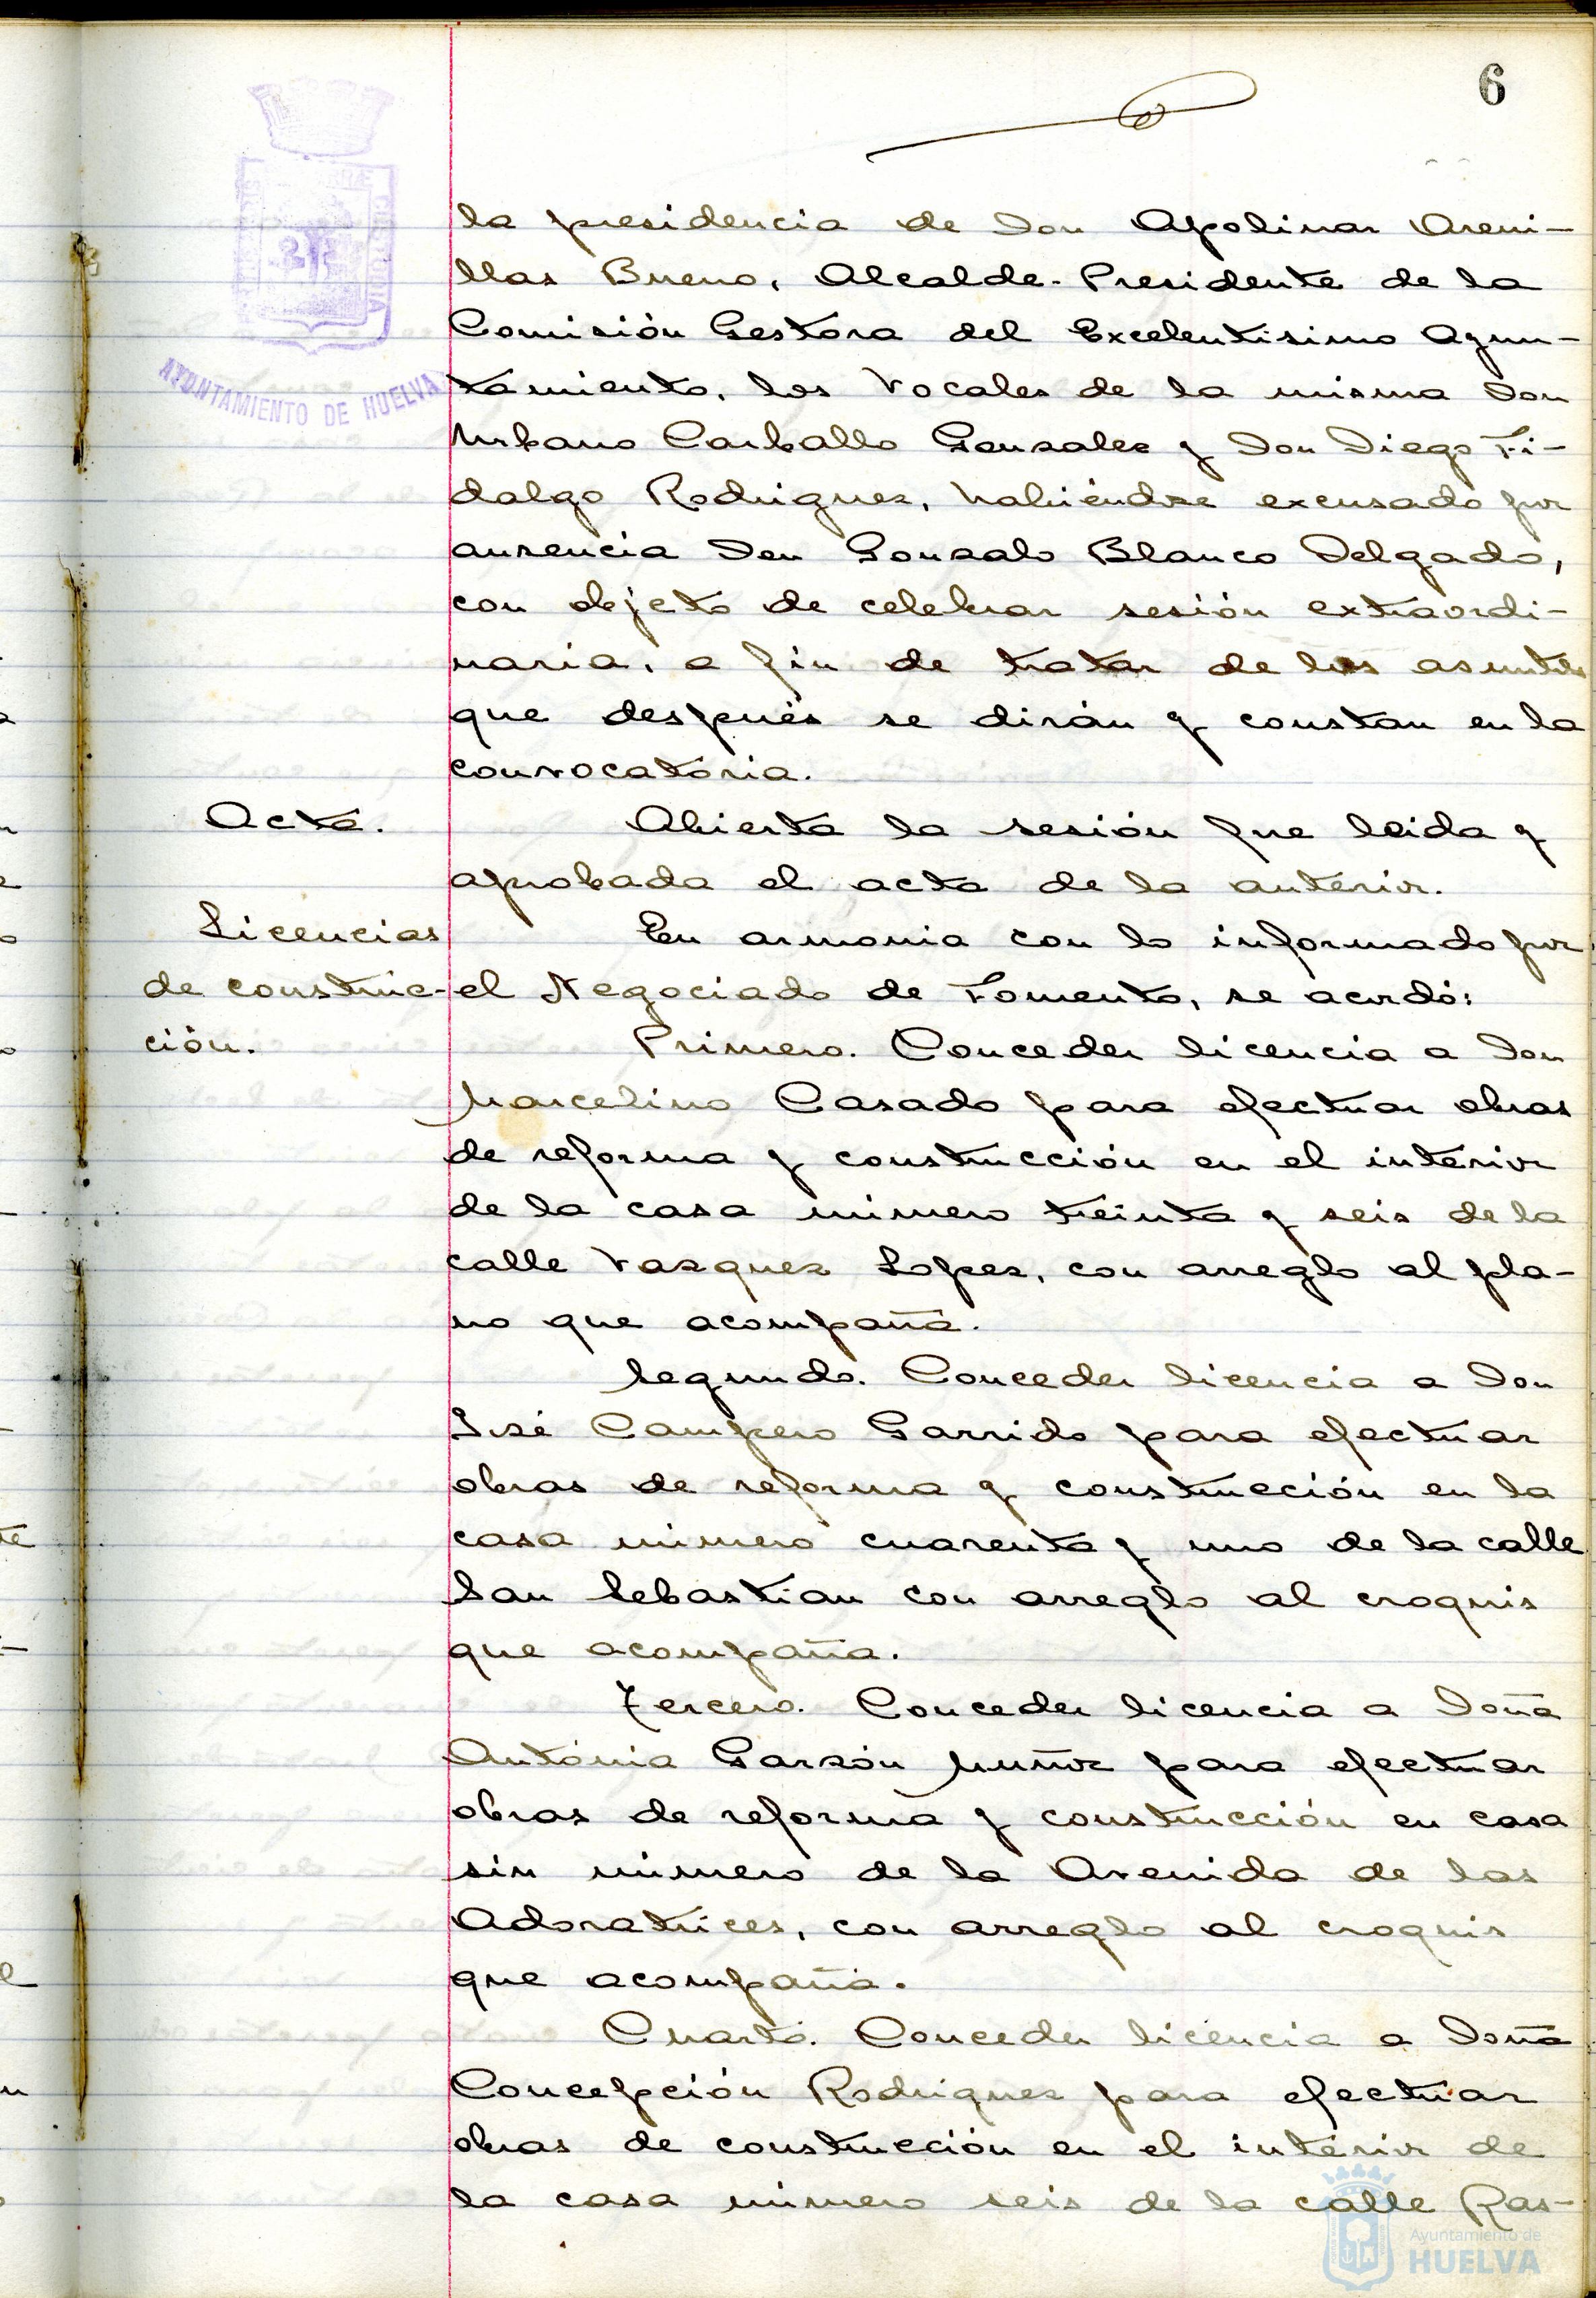 6
AYUNTAMIENTO DE HUELVA
la presidencia de Don Apolinar Areni-
llas Bueno, Alcalde-Presidente de la
Comisión Gestora del Excelentisimo Ayun-
tamiento, los Vocales de la misma Don
Urbano Carballo Gonzalez y Don Diego Fi-
dalgo Rodriguez, habiéndose excusado por
ausencia Don Gonzalo Blanco Delgado,
con objeto de celebrar sesión extraordi-
naria, a fin de tratar de los asuntos
que después se dirán y constan en la
convocatoria.
Acta.
Abierta la sesión fue leida y
aprobada el acta de la anterior.
Licencias
de construc-
ción.
En armonia con lo informado por
el Negociado de Fomento, se acordó:
Primero. Conceder licencia a Don
Marcelino Casado para efectuar obras
de reforma y construcción en el interior
de la casa número treinta y seis de la
calle Vazquez Lopez, con arreglo al pla-
no que acompaña.
Segundo. Conceder licencia a Don
José Campero Garrido para efectuar
obras de reforma y construcción en la
casa número cuarenta y uno de la calle
San Sebastian con arreglo al croquis
que acompaña.
Tercero. Conceder licencia a Doña
Antonia Garzón Muñoz para efectuar
obras de reforma y construcción en casa
sin número de la Avenida de las
Adoratrices, con arreglo al croquis
que acompaña.
Cuarto. Conceder licencia a Doña
Concepción Rodriguez para efectuar
obras de construcción en el interior de
la casa número seis de la calle Ras-
Ayuntamiento de
HUELVA